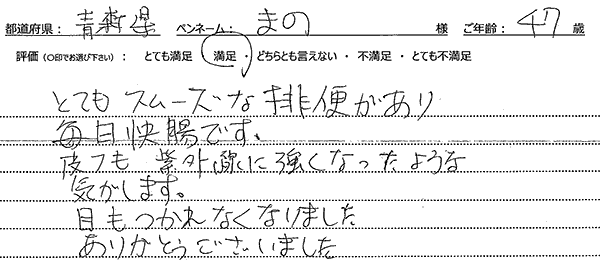 都道府県： 青森県 ペンネーム： まの 様 ご年齢： 47 歳
評価（○印でお選び下さい）： とても満足 満足 ・ どちらとも言えない ・ 不満足 ・ とても不満足
とてもスムーズな排便があり
毎日快腸です。
皮フも紫外線に強くなったような
気がします。
目もつかれなくなりました
ありがとうございました